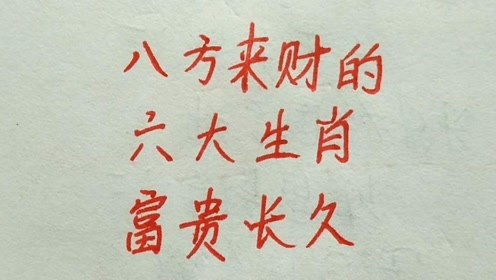 八方来财的
六大生肖
富贵长久